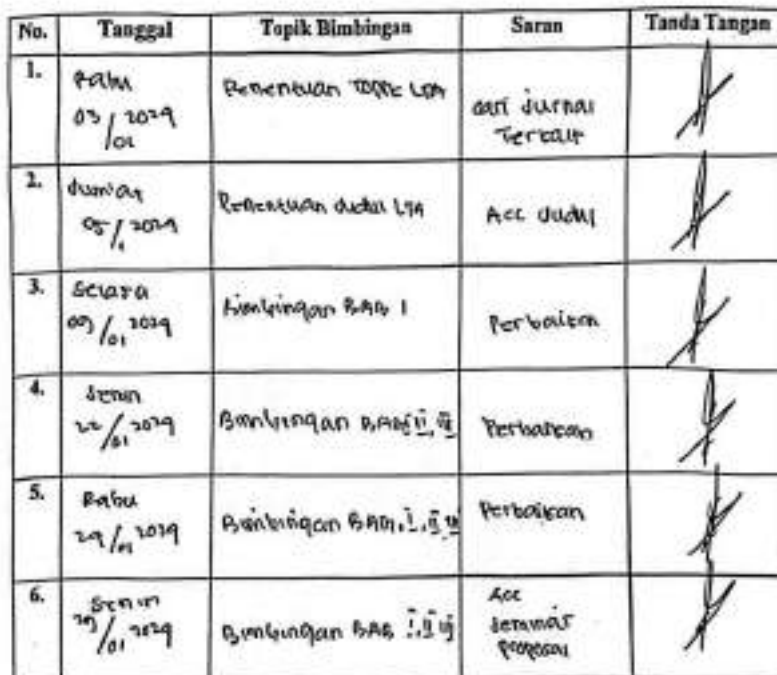 No. Tanggal Topik Bimbingan Saran Tanda Tangan
1. Rabu
03/01 2024
Penentuan Topic LTA
cari Jurnal
Terkait
2. Jum'at
05/1 2024
Penentuan Judul LTA
Acc Judul
3. Selasa
09/01 2024
Bimbingan BAB I
Perbaikan
4. Senin
22/01 2024
Bimbingan BAB II, III
Perbaikan
5. Rabu
24/01 2024
Bimbingan BAB, I, II, III
Perbaikan
6. Senin
29/01 2024
Bimbingan BAB I, II, III
Acc
Seminar
Proposal